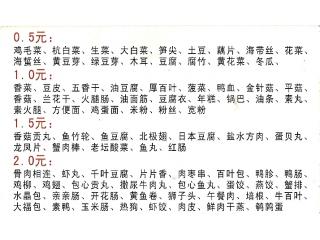 0.5元：
鸡毛菜、杭白菜、生菜、大白菜、笋尖、土豆、藕片、海带丝、花菜、
海蜇丝、黄豆芽、绿豆芽、木耳、豆腐、腐竹、黄花菜、冬瓜、
1.0元：
香菜、豆皮、五香干、油豆腐、厚百叶、菠菜、鸭血、金针菇、平菇、
香菇、兰花干、火腿肠、油面筋、豆腐衣、年糕、锅巴、油条、素丸、
素火腿、方便面、鸡蛋面、米粉、粉丝、宽粉
1.5元：
香菇贡丸、鱼竹轮、鱼豆腐、北极翅、日本豆腐、盐水方肉、蛋贝丸、
龙凤片、蟹肉棒、老坛酸菜、鱼丸、红肠
2.0元：
骨肉相连、虾丸、千叶豆腐、片片香、肉枣串、百叶包、鸭胗、鸭肠、
鸡柳、鸡翅、包心贡丸、撒尿牛肉丸、包心鱼丸、蛋饺、燕饺、蟹排、
水晶包、亲亲肠、开花肠、黄鱼卷、狮子头、午餐肉、培根、牛百叶、
大福包、素鸭、玉米肠、热狗、虾饺、肉皮、鲜肉干蒸、鹌鹑蛋